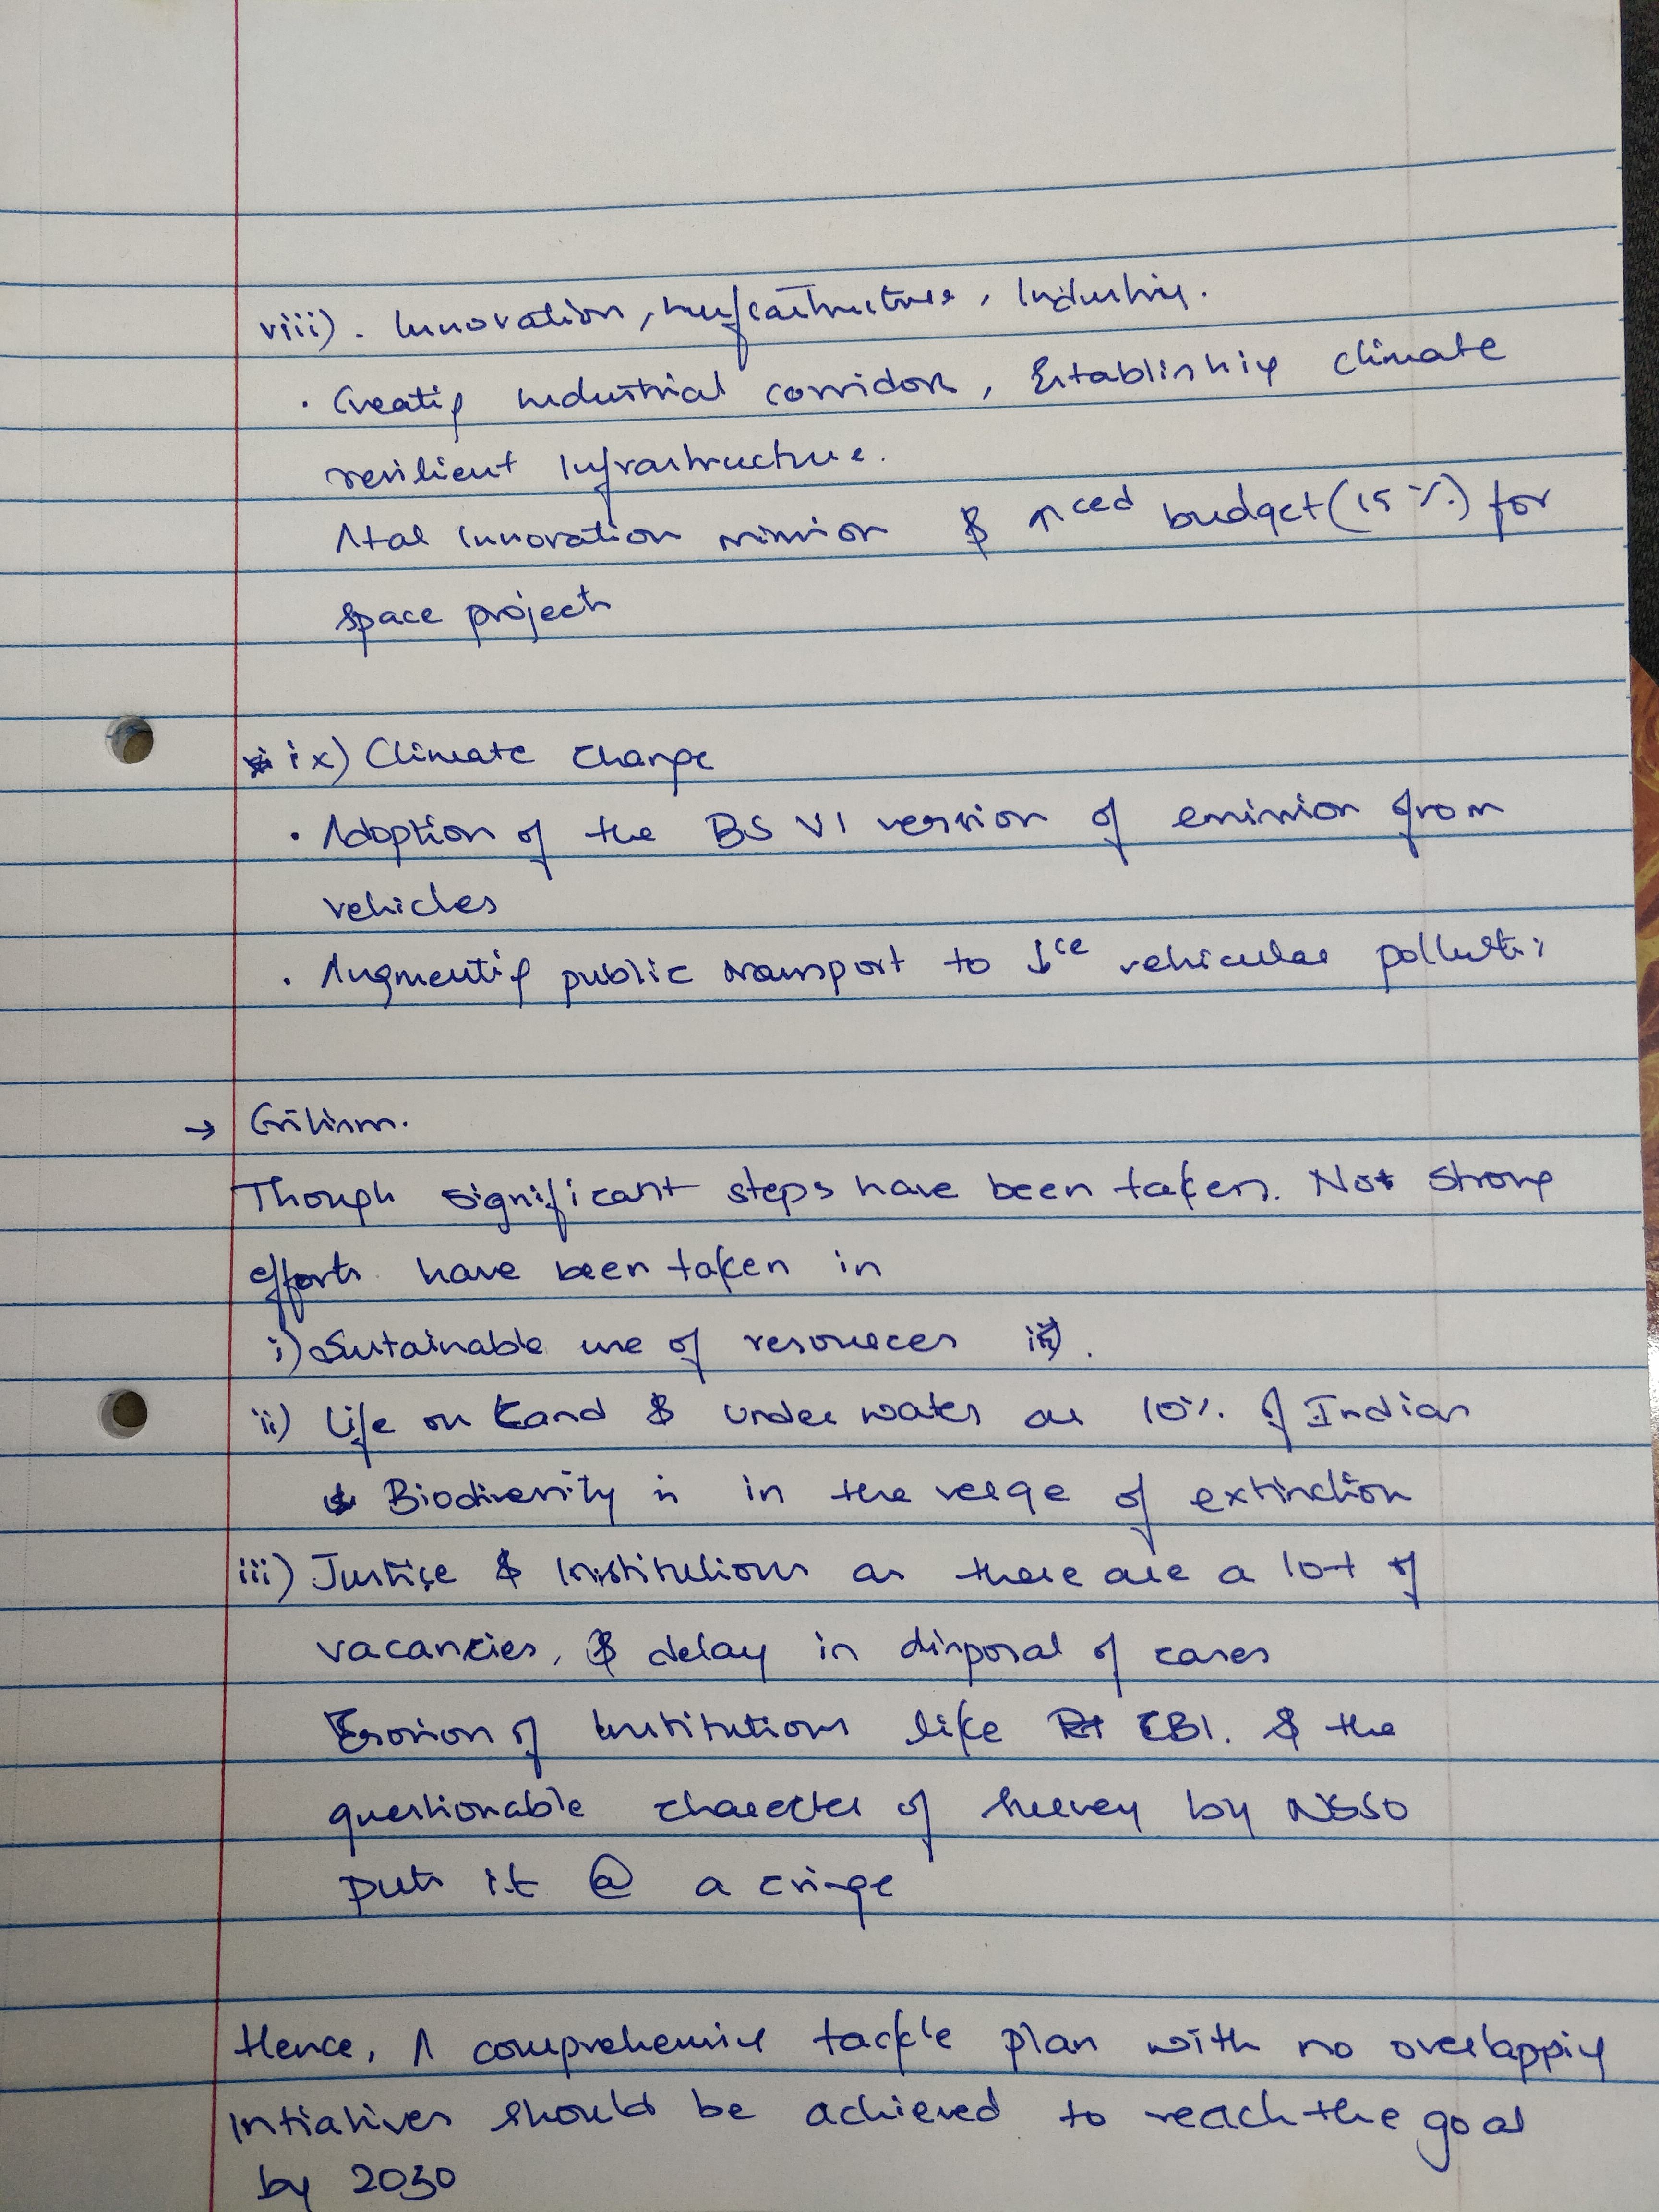 viii). Innovation, Infrastructure, Industry.
· Creating industrial corridors, Establishing climate
resilient Infrastructure.
Atal Innovation mission & ↑ced budget (15%) for
space projects
ix) Climate change
· Adoption of the BS VI version of emission from
vehicles
· Augmenting public transport to ↓ce vehicular
→ Critism.
Though significant steps have been taken. Not strong
efforts have been taken in
i) Sustainable use of resources
ii) Life on Land & Under water as 10% of Indian
Biodiversity is in the verge of extinction
iii) Justice & Institutions as there are a lot of
vacancies, & delay in disposal of cases
Erosion of Institutions like CBI. & the
questionable character of survey by NSSO
puts it @ a cringe
Hence, A comprehensive tackle plan with no overlapping
Intiatives should be achieved to reach the goal
by 2030